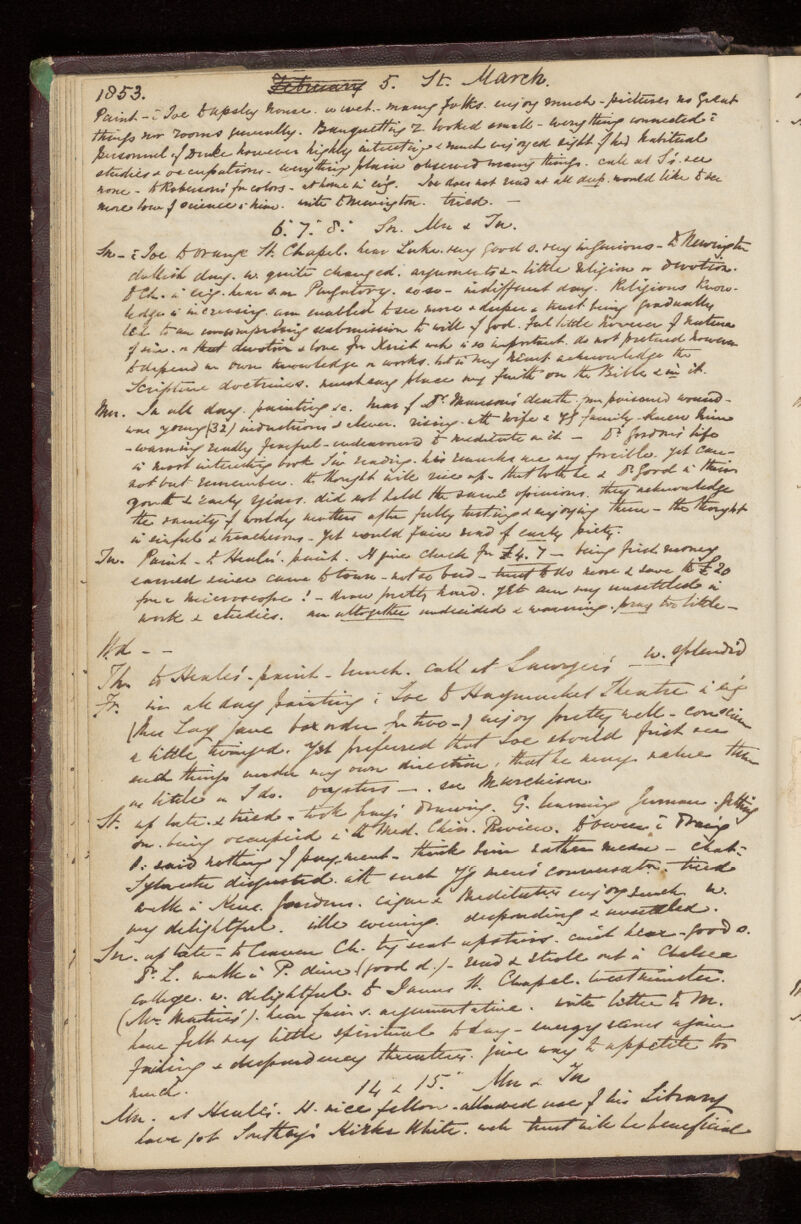 1853. February 5. St. March.
Paint - c Joe to Apsley House. w. wet - many folks. enjoy much - pictures no great
things nor rooms generally. Banquetting r looked small - everything connected c
personnel of Duke however highly interesting & much enjoyed sight of his habitual
studies & occupations - everything plain observed many things. call at S's. see
none - to Robersons' for colors - at home in ev'g. Joe does not read at all deep. would like to see
more love of science in him. write to Newington. tired. -
6. 7. 8. Sn. Mn & Tu.
Sn - c Joe to Orange St. Chapel. hear Luke. very good s. very ingenious - to Newington
dullish day. w. quite changed. arguments & - little religion or devotion.
to Ch. in ev'g. hear s. on Purgatory. so so - indifferent day. Religious know-
ledge is increasing. am enabled to see more & deeper & trust being gradually
led to an uncompromising submission to will of God. feel little however of nature
of sin. or that devotion & love for Xrist wh is so important. do not pretend however
to depend on own knowledge or works. but in my heart acknowledge the
Scripture doctrines. must say place my faith on the Bible & in it.
Mn. In all day. painting &c. hear of Dr. Mansons' death. from poisoned wound -
was young (32) industrious & clever. rising. with wife & yg family - knew him
- warning really fearful - endeavoured to meditate on it - Dr. Gordon's life
a most interesting book I'm reading. his remarks are very forcible. yet can-
not but remember. the thought will rise up - that both he & Dr. Good in their
youth & early years. did not hold the same opinions. they acknowledge
the vanity of worldly matters after fully tasting & enjoying them - the thought
is sinful & treacherous - yet would fain read of early piety.
Tu. Paint - to Heales'. paint. H give check for £4. 7 - being first money
earned since came to town - not so bad - trust to do more & save to £20
for a microscope! - draw pretty hard. yet am very unsettled in
work & studies. am altogether undecided & wavering. pray too little -
Wd - -
Th to Heales' - paint - lunch. call at Sawyers' w. splendid
Fr. in all day painting c Joe to Haymarket Theatre in ev'g
(Mrs Loy gave box order for two -) enjoy pretty well - conscience
a little twinged. yet preferred that Joe should first see
such things under my own direction, that he may value them
as little as I do. oysters - . see Murchison
St. up late. & tired - took drawing. G. learning German. getting
on. being occupied in the Med. Chir. Review. to c Craig
D. said nothing of payment - think him rather mean - chat c
Sylvester disgusted with such y'g men's conversatn. tired
walk in Kens. Gardens. cigar & meditate enjoy much w.
very delightful. idle evening. desponding & unsettled.
Sn. up late - to Craven Ch. try seat upstairs. can't hear - good s.
Dr. L. walk in P. dine (good d.) - read & stroll out in Chelsea
college. w. delightful. to James St. Chapel. Westminster.
(Mr. Martins'). hear fair s. argumentative. write letter to M.
have felt very little spiritual today - energy seems again
failing & despondency threatens. give way to appetite too
much. 14 & 15. Mn & Tu
Mn. at Heales'. H. nice fellow - allowed use of his Library
have got Southey's Kirke White. wh trust will be beneficial